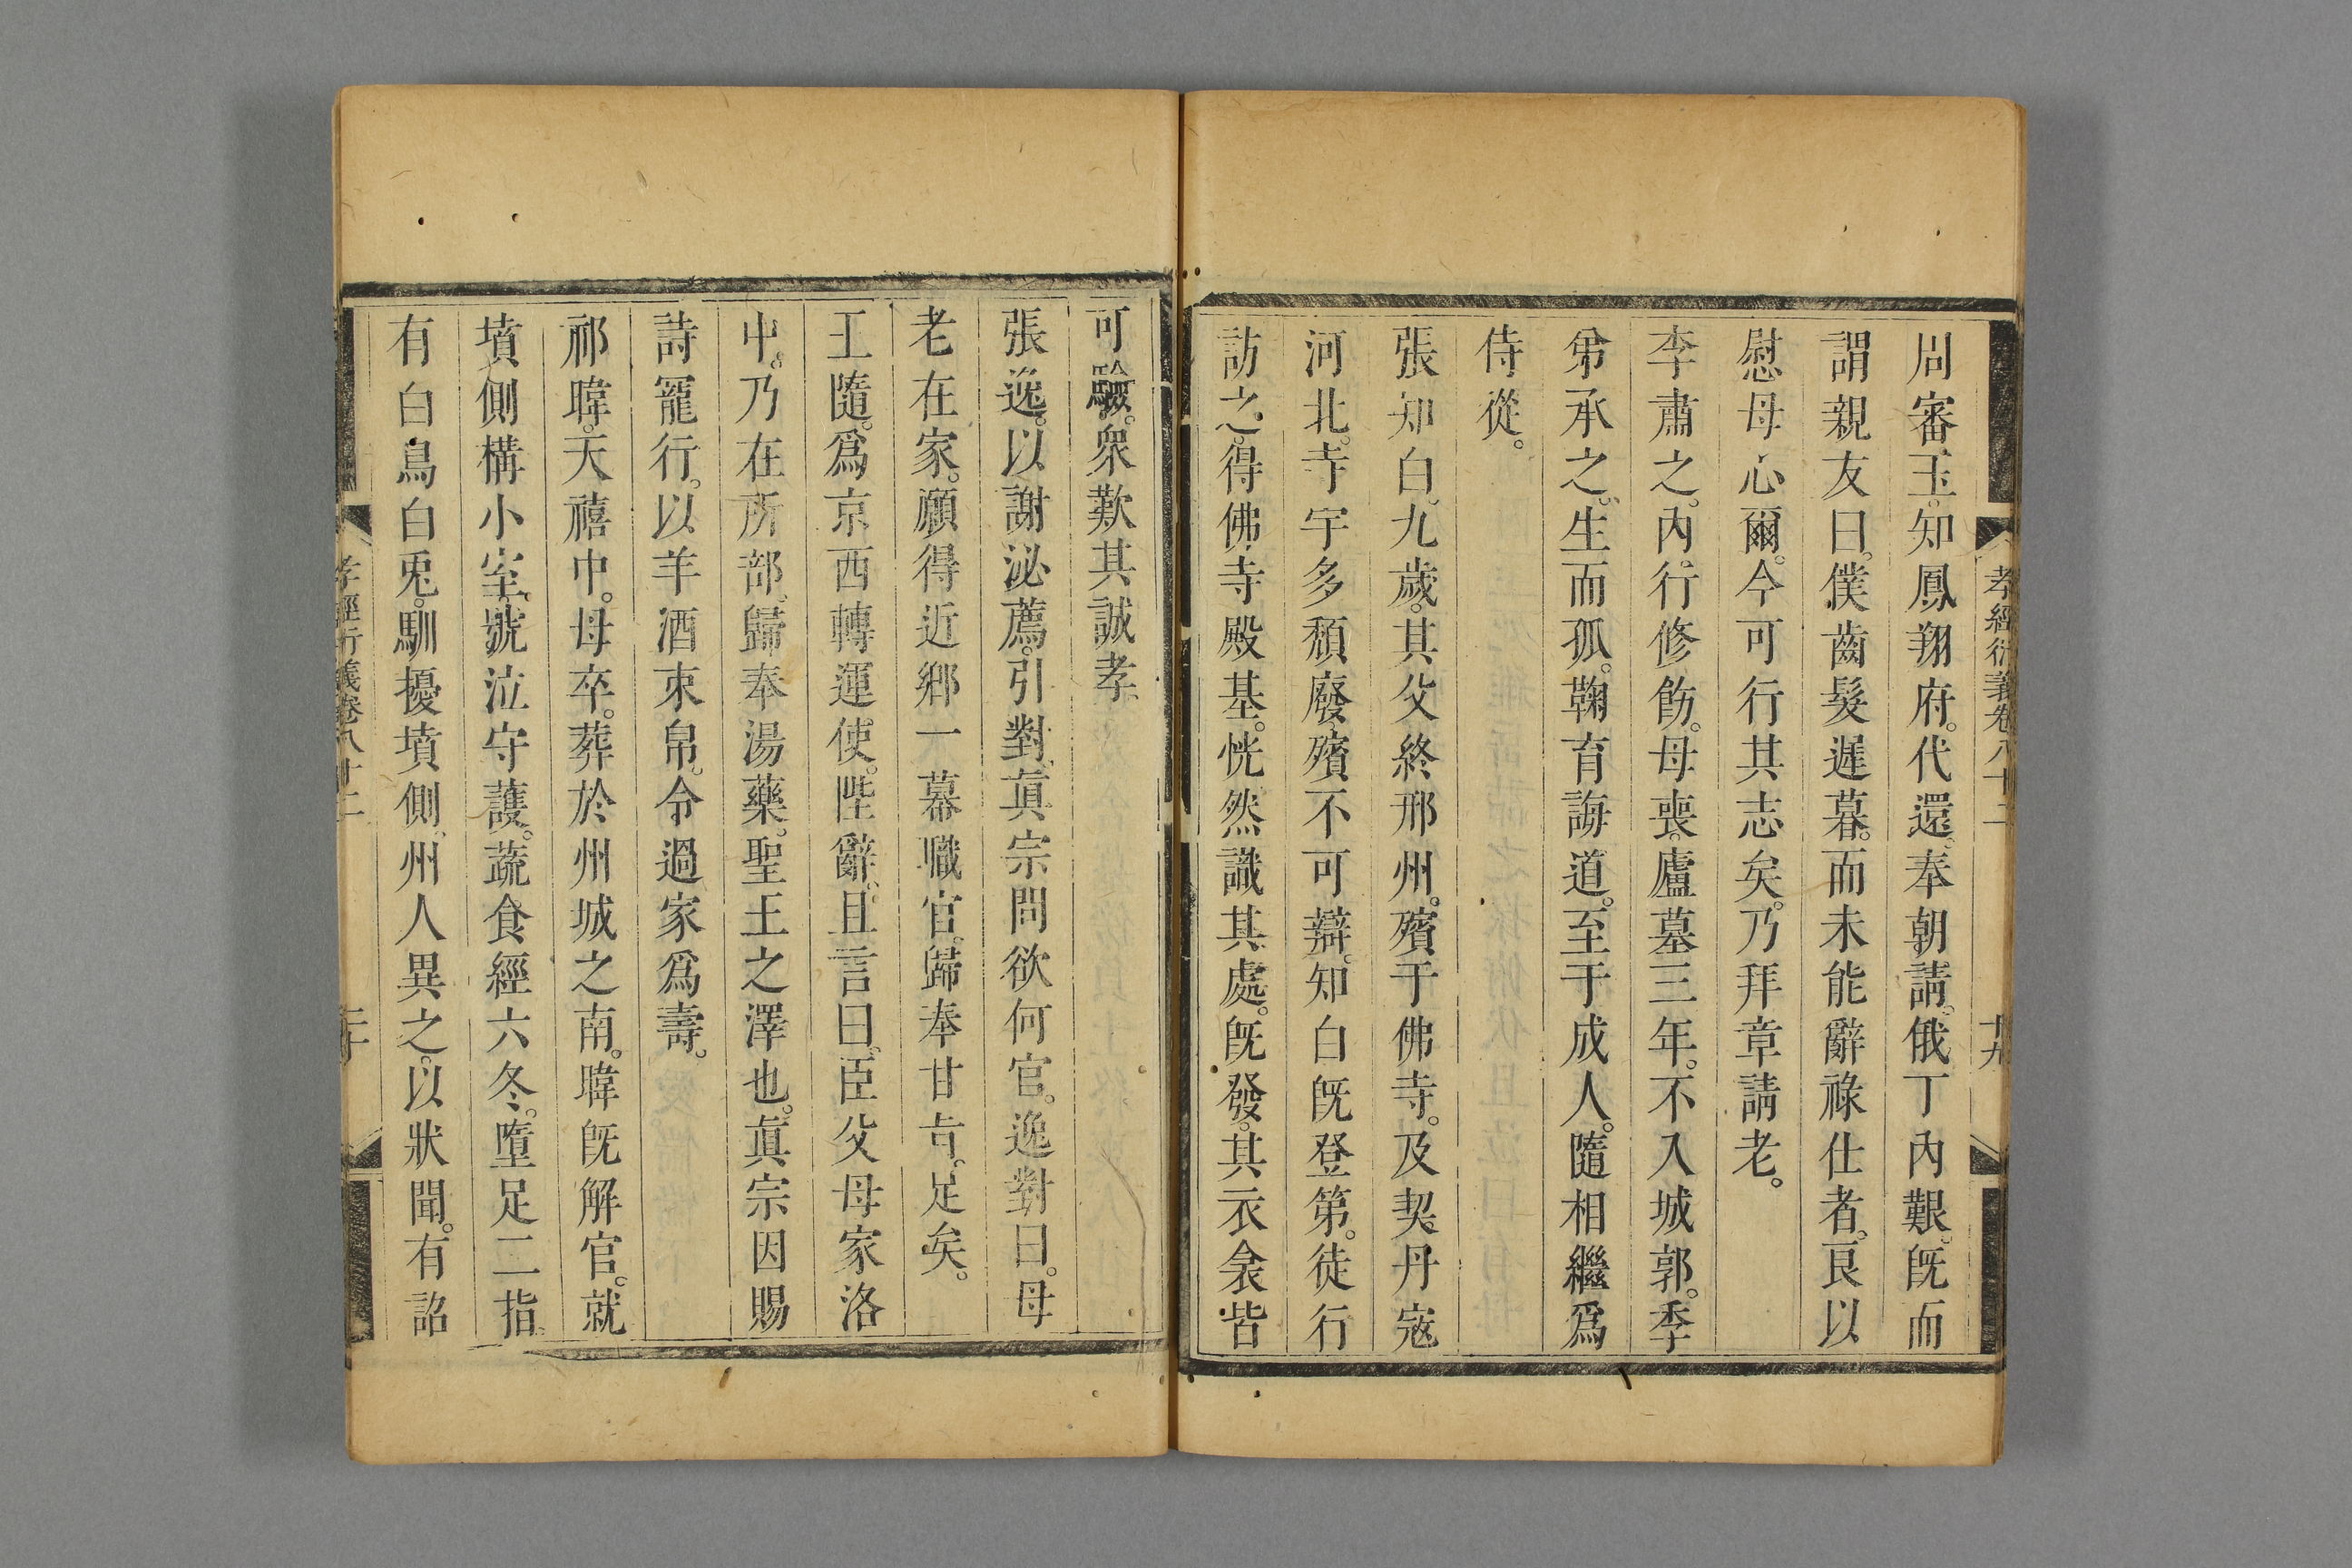 孝經衍義卷八十二　十九
周審玉。知鳳翔府。代還。奉朝請。俄丁內艱。旣而
謂親友曰。僕齒髮遲暮。而未能辭祿仕者。良以
慰母心爾。今可行其志矣。乃拜章請老。
李肅之。內行修飭。母喪。廬墓三年。不入城郭。季
弟承之。生而孤。鞠育誨道。至于成人。隨相繼爲
侍從。
張知白。九歲。其父終邢州。殯于佛寺。及契丹寇
河北。寺宇多頹廢。殯不可辯。知白旣登第。徒行
訪之。得佛寺殿基。恍然識其處。旣發。其衣衾皆
可驗。衆歎其誠孝。
張逸。以謝泌薦。引對。眞宗問欲何官。逸對曰。母
老在家。願得近鄉一幕職官。歸奉甘旨。足矣。
王隨。爲京西轉運使。陛辭。且言曰。臣父母家洛
中。乃在所部。歸奉湯藥。聖王之澤也。眞宗因賜
詩寵行。以羊酒束帛。令過家爲壽。
祁暐。天禧中。母卒。葬於州城之南。暐旣解官。就
墳側構小室。號泣守護。蔬食經六冬。墮足二指。
有白鳥白兎。馴擾墳側。州人異之。以狀聞。有詔
孝經衍義卷八十二　二十